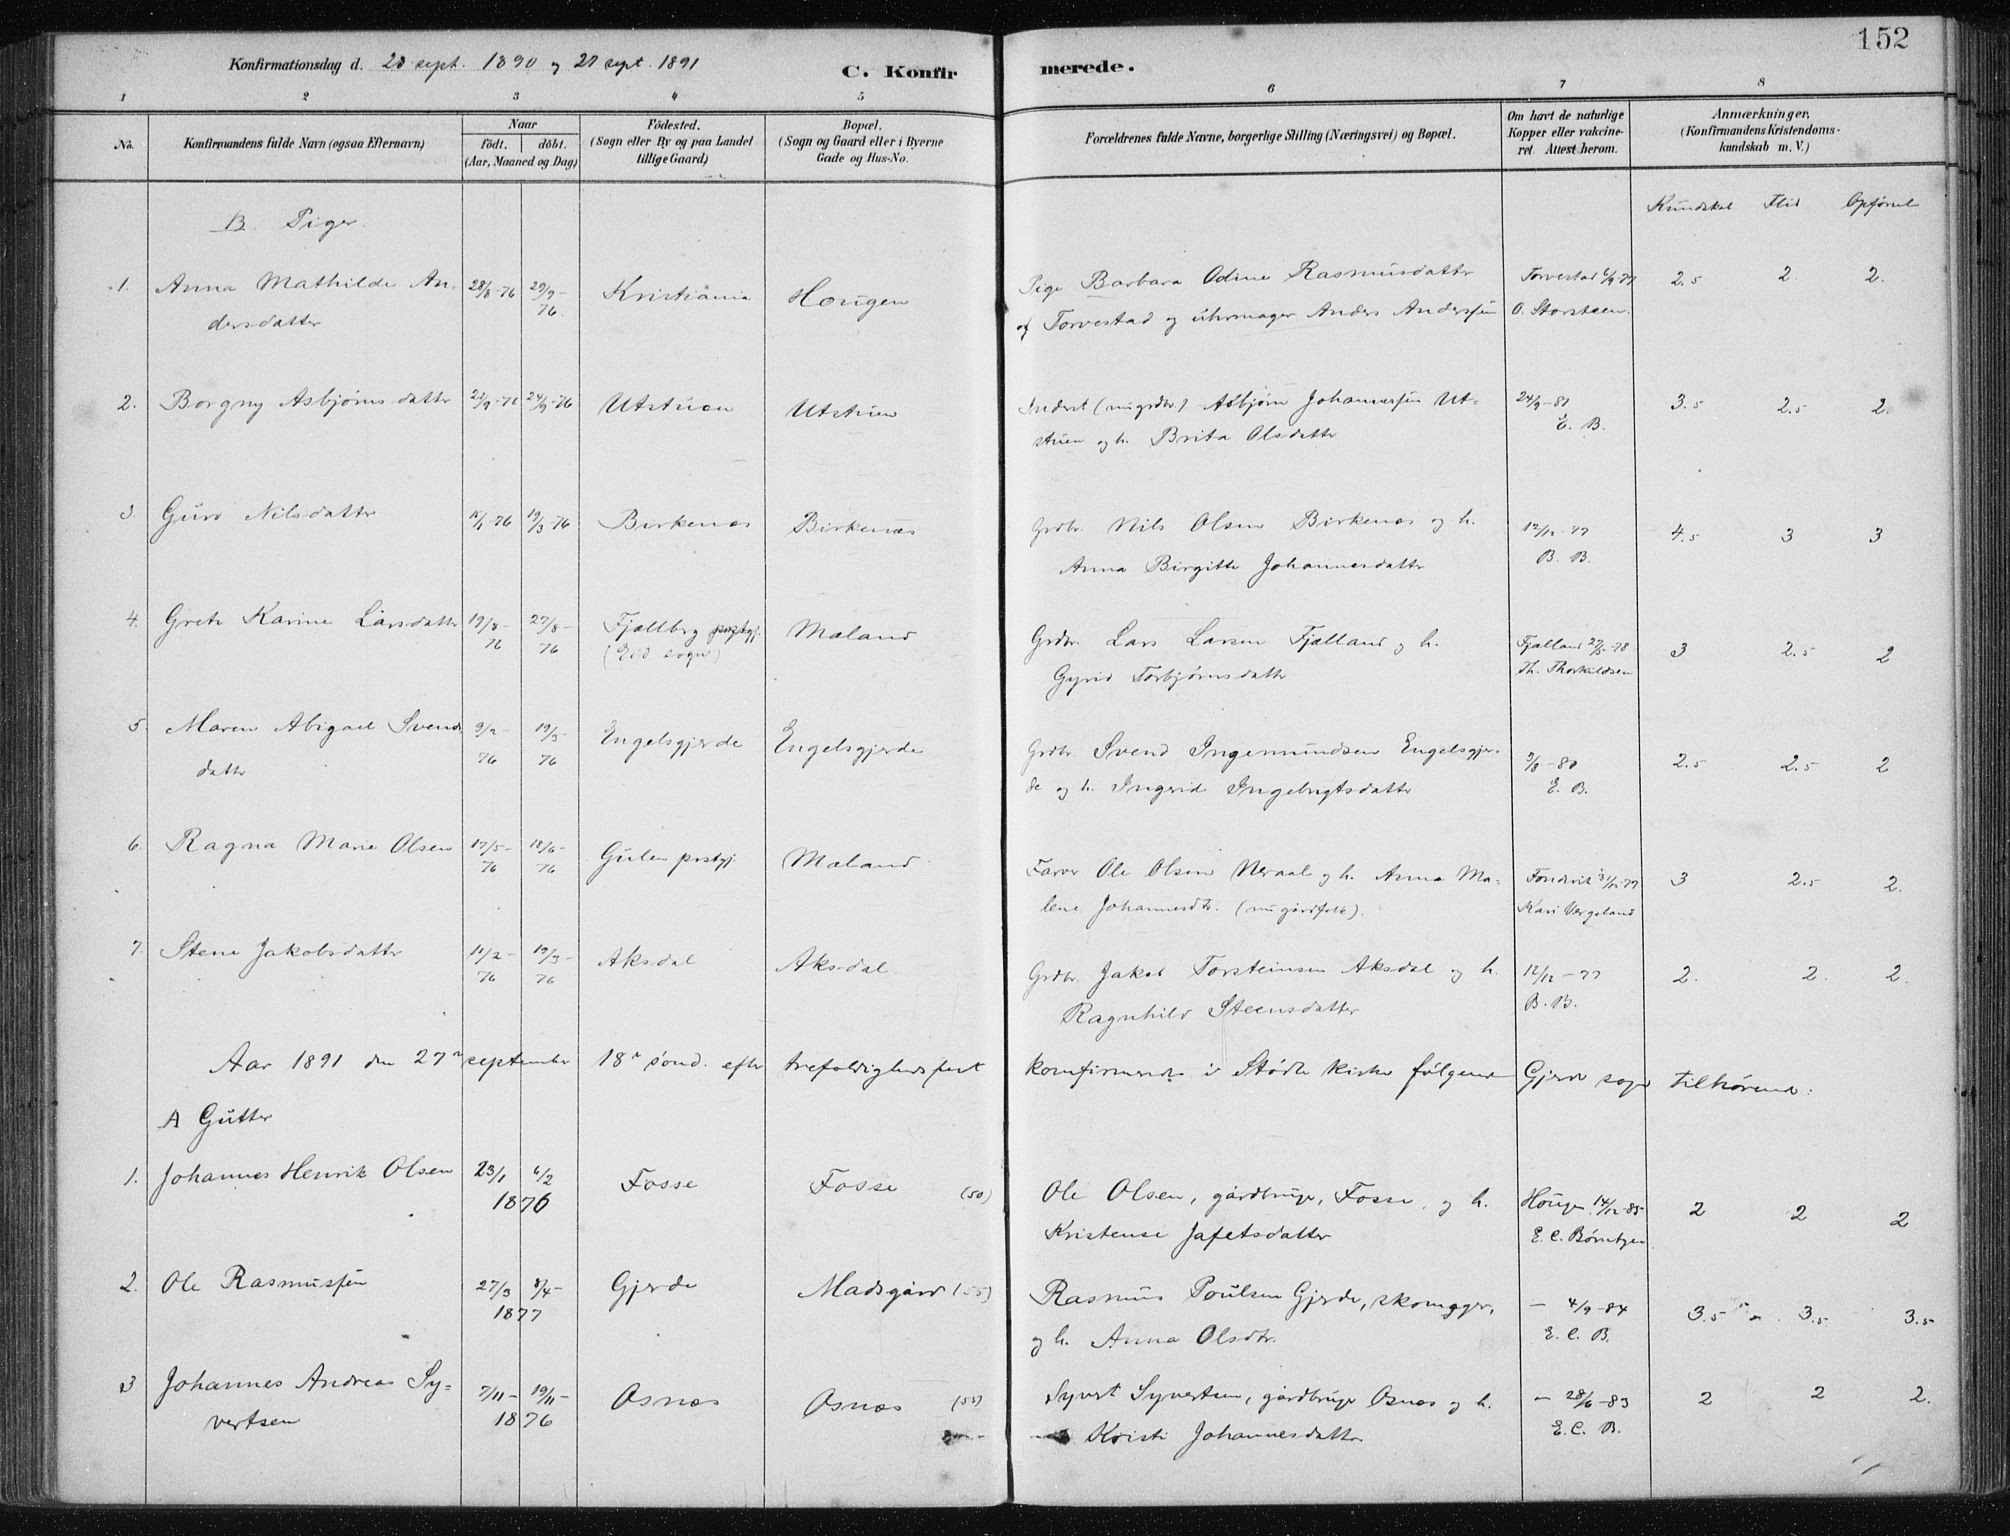 152
Konfirmationsdag d. 28 sept. 1890 og 27 sept. 1891
C. Konfirmerede.
1 2 3 4 5 6 7 8
No.
Konfirmandens fulde Navn (ogsaa Efternavn)
Naar
født. døbt.
(Aar, Maaned og Dag)
Fødested.
(Sogn eller By og paa Landet
tillige Gaard)
Bopæl.
(Sogn og Gaard eller i Byerne
Gade og Hus-No.
Forældrenes fulde Navne, borgerlige Stilling (Næringsvei) og Bopæl.
Om havt de naturlige
Kopper eller vakcine-
ret. Attest herom.
Anmærkninger,
(Konfirmandens Kristendoms-
kundskab m. V.)
Kundskab Flid Opførsel
B. Piger.
1. Anna Mathilde An- 28/8-76 29/9- Kristiania Hougen Pige Barbara Odine Rasmusdatter Torvestad 6/9-77 2.5 2 2.
dersdatter 76. af Torvestad og uhrmager Anders Andersen O. Storsteen.
2. Borgny Asbjørnsdatter 24/9-76 Utstuen Utstuen Inderst (nu grdbr) Asbjørn Johannessen Ut- 24/9-80 3.5 2.5 2.
stuen og h. Brita Olsdatter E. B.
3. Guro Nilsdatter 19/3-76 Birkenæs Birkenæs Grdbr. Nils Olsen Birkenæs og h. 12/12-77 4.5 3 3
Anna Birgitte Johannesdatter B. B.
4. Grete Karine Larsdatter 19/8- 27/8- Fjellberg prstgj. Mæland Grdbr. Lars Larsen Fjælland og h. Fjælland 27/5-78 3 2.5 2
76 76 (Eid sogn) Gyrid Torbjørnsdatter Th. Thorkildsen
5. Maren Abigael Svends 9/2- 19/3- Engelsgjerde Engelsgjerde Grdbr. Svend Ingemundsen Engelsgjer- 3/8-80 2.5 2.5 2
datter 76 76 de og h. Ingerid Ingebrigtsdatter E. B.
6. Ragna Marie Olsen 17/5- 18/6- Gulen prstgj. Mæland Farver Ole Olsen Neraal og h. Anna Ma- 3 2.5 2.
76 76 lene Johannesdtr. (nu gårdfolk). Kari Vergeland
7. Stene Jakobsdatter 11/2- 19/3- Aksdal Aksdal. Grdbr. Jakob Torsteinsen Aksdal og h. 12/12-77 2. 2. 2.
76 76 Ragnhild Steensdatter B. B.
Aar 1891 den 27de september 18de sønd. efter trefoldighedsfest konfirmerede i Stødle kirke følgende Gjerde sogn tilhørende:
A Gutter
1. Johannes Henrik Olsen 23/1 6/2 Fosse Fosse (50) Ole Olsen, gårdbruger, Fosse, og h. Hougen 14/12-85 2 2 2
1876 Kristense Jafetsdatter E. C. Børntzen.
2. Ole Rasmussen 27/3 8/4- Gjerde Madsgård (55) Rasmus Poulsen Gjerde, skomager, — 4/9-84 3.5 3.5 3.5
1877 og h. Anna Olsdtr. E. C. B.
3 Johannes Andreas Sy- 7/11- 19/11- Osnæs Osnæs Syvert Syvertsen, gårdbruger Osnæs og h. — 28/6-83 2 2 2.
vertsen 1876 Kristi Johannesdatter E. C. B.